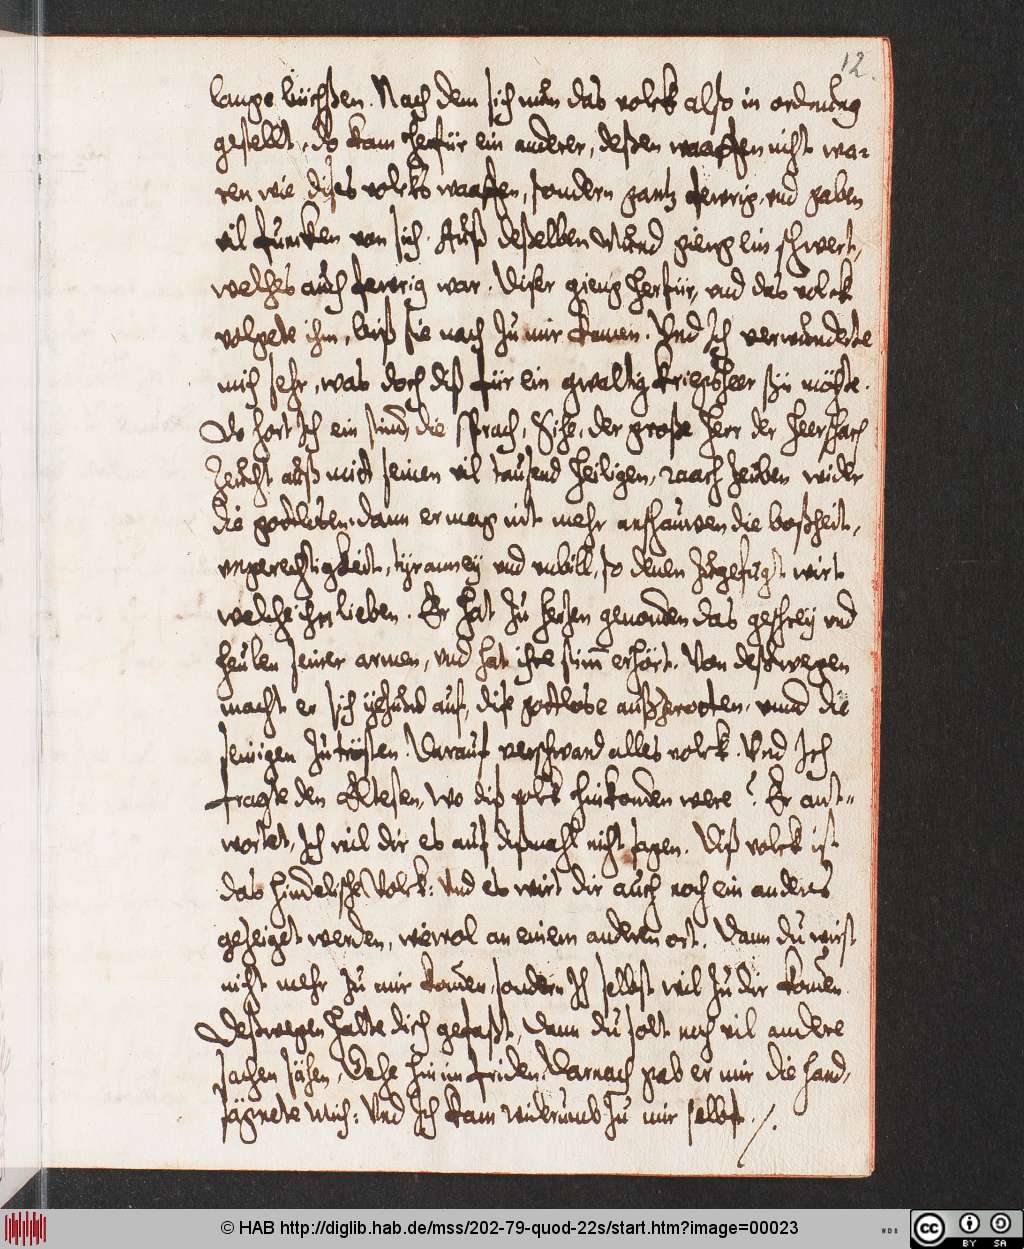 12.
lange büchßen. Nach dem sich nun das volck also in ordnung
gestellt, do kam herfür ein anderer, deßen waaffen nicht wa-
ren wie dises volcks waaffen, sondern gantz fewrig, vnd gaben
vil funcken von sich. Auß deßelben Mund gieng ein schwert,
welches auch fewrig war. Diser gieng herfür, vnd das volck
volgete ihm, biß sie nach zu mir kamen. Vnd Ich verwunderte
mich sehr, was doch diß für ein gewaltig kriegsheer sey möchte.
Do hört Ich ein stimm, die sprach, Sihe, der große Herr der Heerschar
Zeucht auß mitt seinen vil tausend heiligen, raach zeüben wider
die gottlosen, dann er mag nit mehr anschauwen die boßheit,
vngerechtigkeit, tyranney vnd vnbill, so denen zugefugt wirt
welche ihn lieben. Er hat zu hertzen genomen das geschrey vnd
heulen seiner armen, vnd hat ihre stim erhört. Von deßwegen
macht er sich yetzund auf, dise gottlose außzerotten, vnnd die
seinigen zu trösten. Darauf verschwand alles volck. Vnd Ich
fragte den Eltesten, wo diß volck hinkomen were? Er ant-
wortet, Ich wil dir es auf dißmahl nicht sagen. Diß volck ist
das Volck: Vnd es wirt dir auch noch ein anderes
gezeiget werden, wiewol an einem anderen ort. Dann du wirst
nicht mehr zu mir komen, sondern Ich selbst wil zu dir komen.
Deßwegen halte dich gefaßt, dann du solt noch vil andere
sachen sähen, Gehe hin im friden. Darnach gab er mir die hand,
sägnete mich: Vnd Ich kam widerumb zu mir selbst.
© HAB http://diglib.hab.de/mss/202-79-quod-22s/start.htm?image=00023
WDB
cc
BY SA